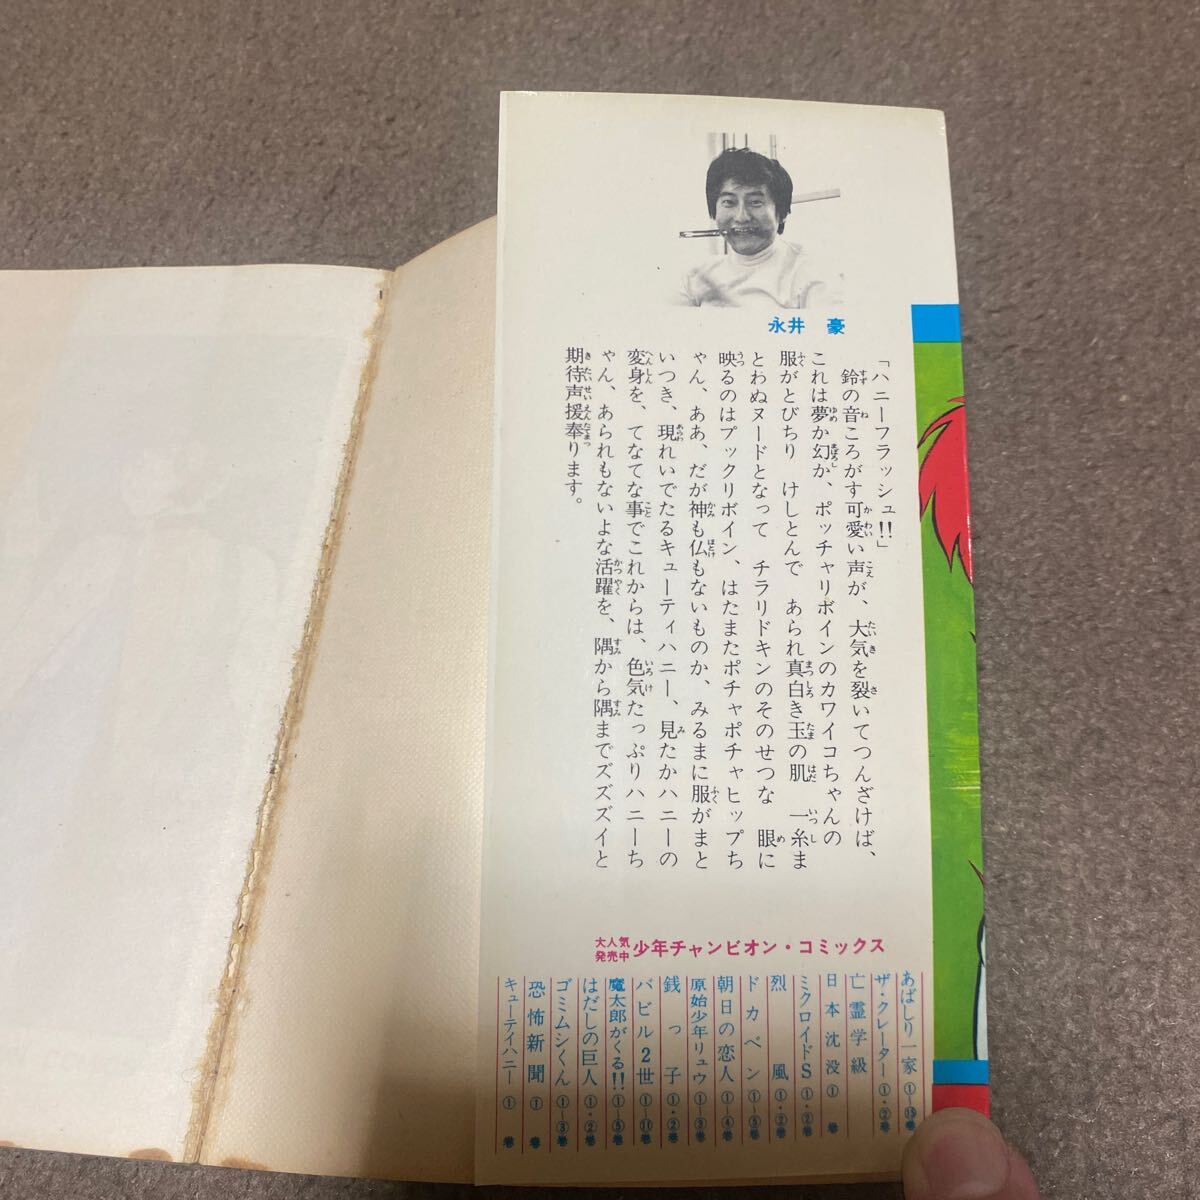 永井 豪
「ハニーフラッシュ!!」
鈴の音ころがす可愛い声が、大気を裂いてつんざけば、
これは夢か幻か、ポッチャリボインのカワイコちゃんの
服がとびちり けしとんで あられ真白き玉の肌 一糸ま
とわぬヌードとなって チラリドキンのそのせつな 眼に
映るのはプックリボイン、はたまたポチャポチャヒップち
ゃん、ああ、だが神も仏もないものか、みるまに服がまと
いつき、現れいでたるキューティハニー、見たかハニーの
変身を、てなてな事でこれからは、色気たっぷりハニーち
ゃん、あられもないよな活躍を、隅から隅までズズズイと
期待声援奉ります。
大人気発売中 少年チャンピオン・コミックス
あばしり一家 ①〜⑮巻
ザ・クレーター ①・②巻
亡霊学級
日本沈没 ① 巻
ミクロイドS ①・②巻
烈風 ①・②巻
ドカベン ①〜⑤巻
朝日の恋人 ①〜④巻
原始少年リュウ ①〜③巻
銭っ子 ①・②巻
バビル2世 ①〜⑪巻
魔太郎がくる!! ①〜⑤巻
はだしの巨人 ①・②巻
ゴミムシくん ①〜③巻
恐怖新聞 ① 巻
キューティハニー ① 巻